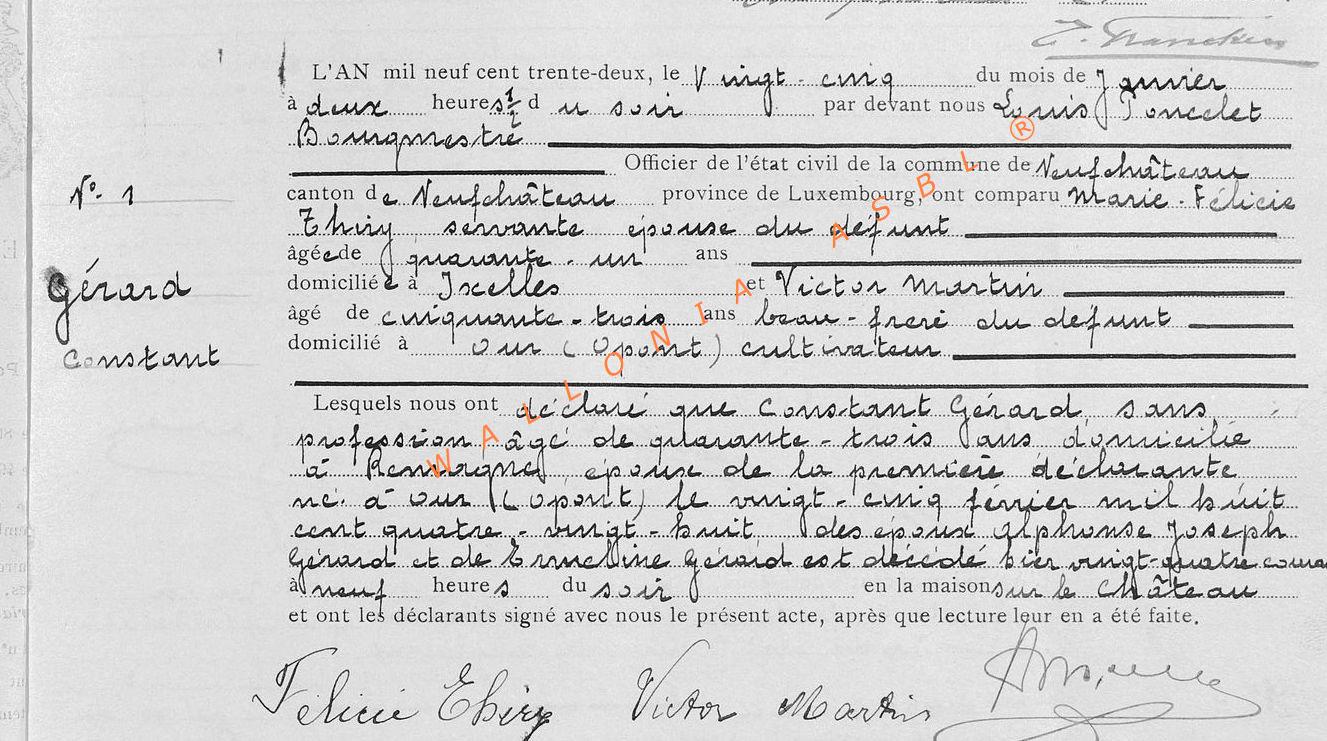 L'AN mil neuf cent trente-deux, le Vingt-cinq du mois de Janvier
à deux heures 1/2 d u soir par devant nous Louis Poncelet
Bourgmestre
Officier de l'état civil de la commune de Neufchâteau
N° 1
canton de Neufchâteau province de Luxembourg, ont comparu Marie-Félicie
Thiry servante épouse du défunt
âgée de quarante-un ans
domiciliée à Ixelles et Victor Martin
Gérard
âgé de cinquante-trois ans beau-frère du défunt
domicilié à Our (Opont) cultivateur
Constant
Lesquels nous ont déclaré que Constant Gérard sans
profession âgé de quarante-trois ans domicilié
à Remagne époux de la première déclarante
né à Our (Opont) le vingt-cinq février mil huit
cent quatre-vingt-huit des époux Alphonse Joseph
Gérard et de Gérard est décédé hier vingt-quatre
à neuf heures du soir en la maison sur le Château
et ont les déclarants signé avec nous le présent acte, après que lecture leur en a été faite.
Félicie Thiry Victor Martin
WALLONIA ASBL ®